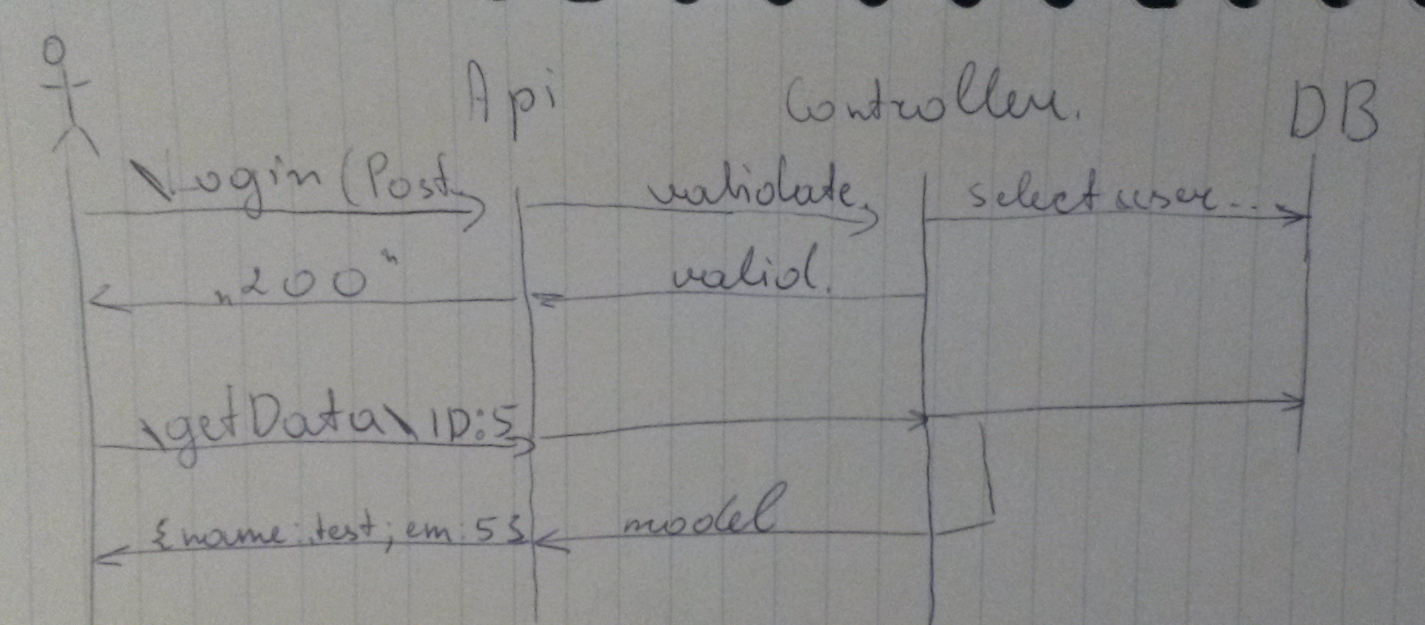 Api Controller. DB
\Login (Post
validate.
select user...
„200"
valid.
\getData\ID:5
{name:test; em:5}
model